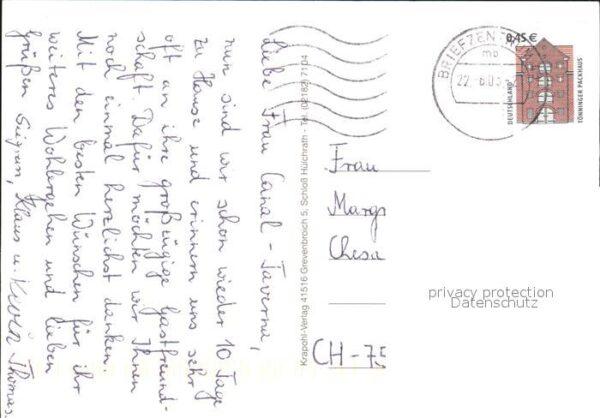 Liebe Frau Canal-Taverna,
nun sind wir schon wieder 10 Tage
zu Hause und erinnern uns sehr
oft an ihre großzügige Gastfreund-
schaft. Dafür möchten wir Ihnen
noch einmal herzlichst danken
Mit den besten Wünschen für ihr
weiteres Wohlergehen und lieben
grüßen Klaus u.
Thomas.
Krapohl-Verlag 41516 Grevenbroich 5, Schloß Hülchrath - Tel. 02182/7104
BRIEFZENTRUM
mb
22.-6.03
0,45 €
DEUTSCHLAND
TÖNNINGER PACKHAUS
Frau
Margr
Chesa
CH-75
privacy protection
Datenschutz